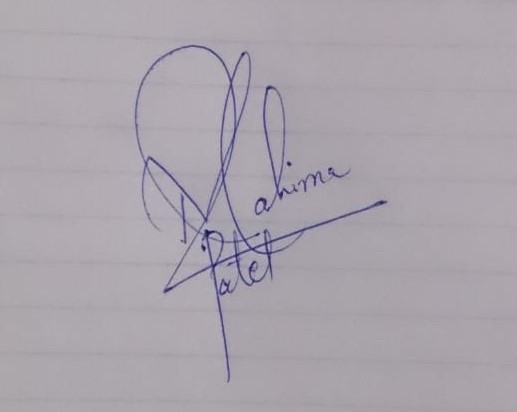 Mahima
Patel